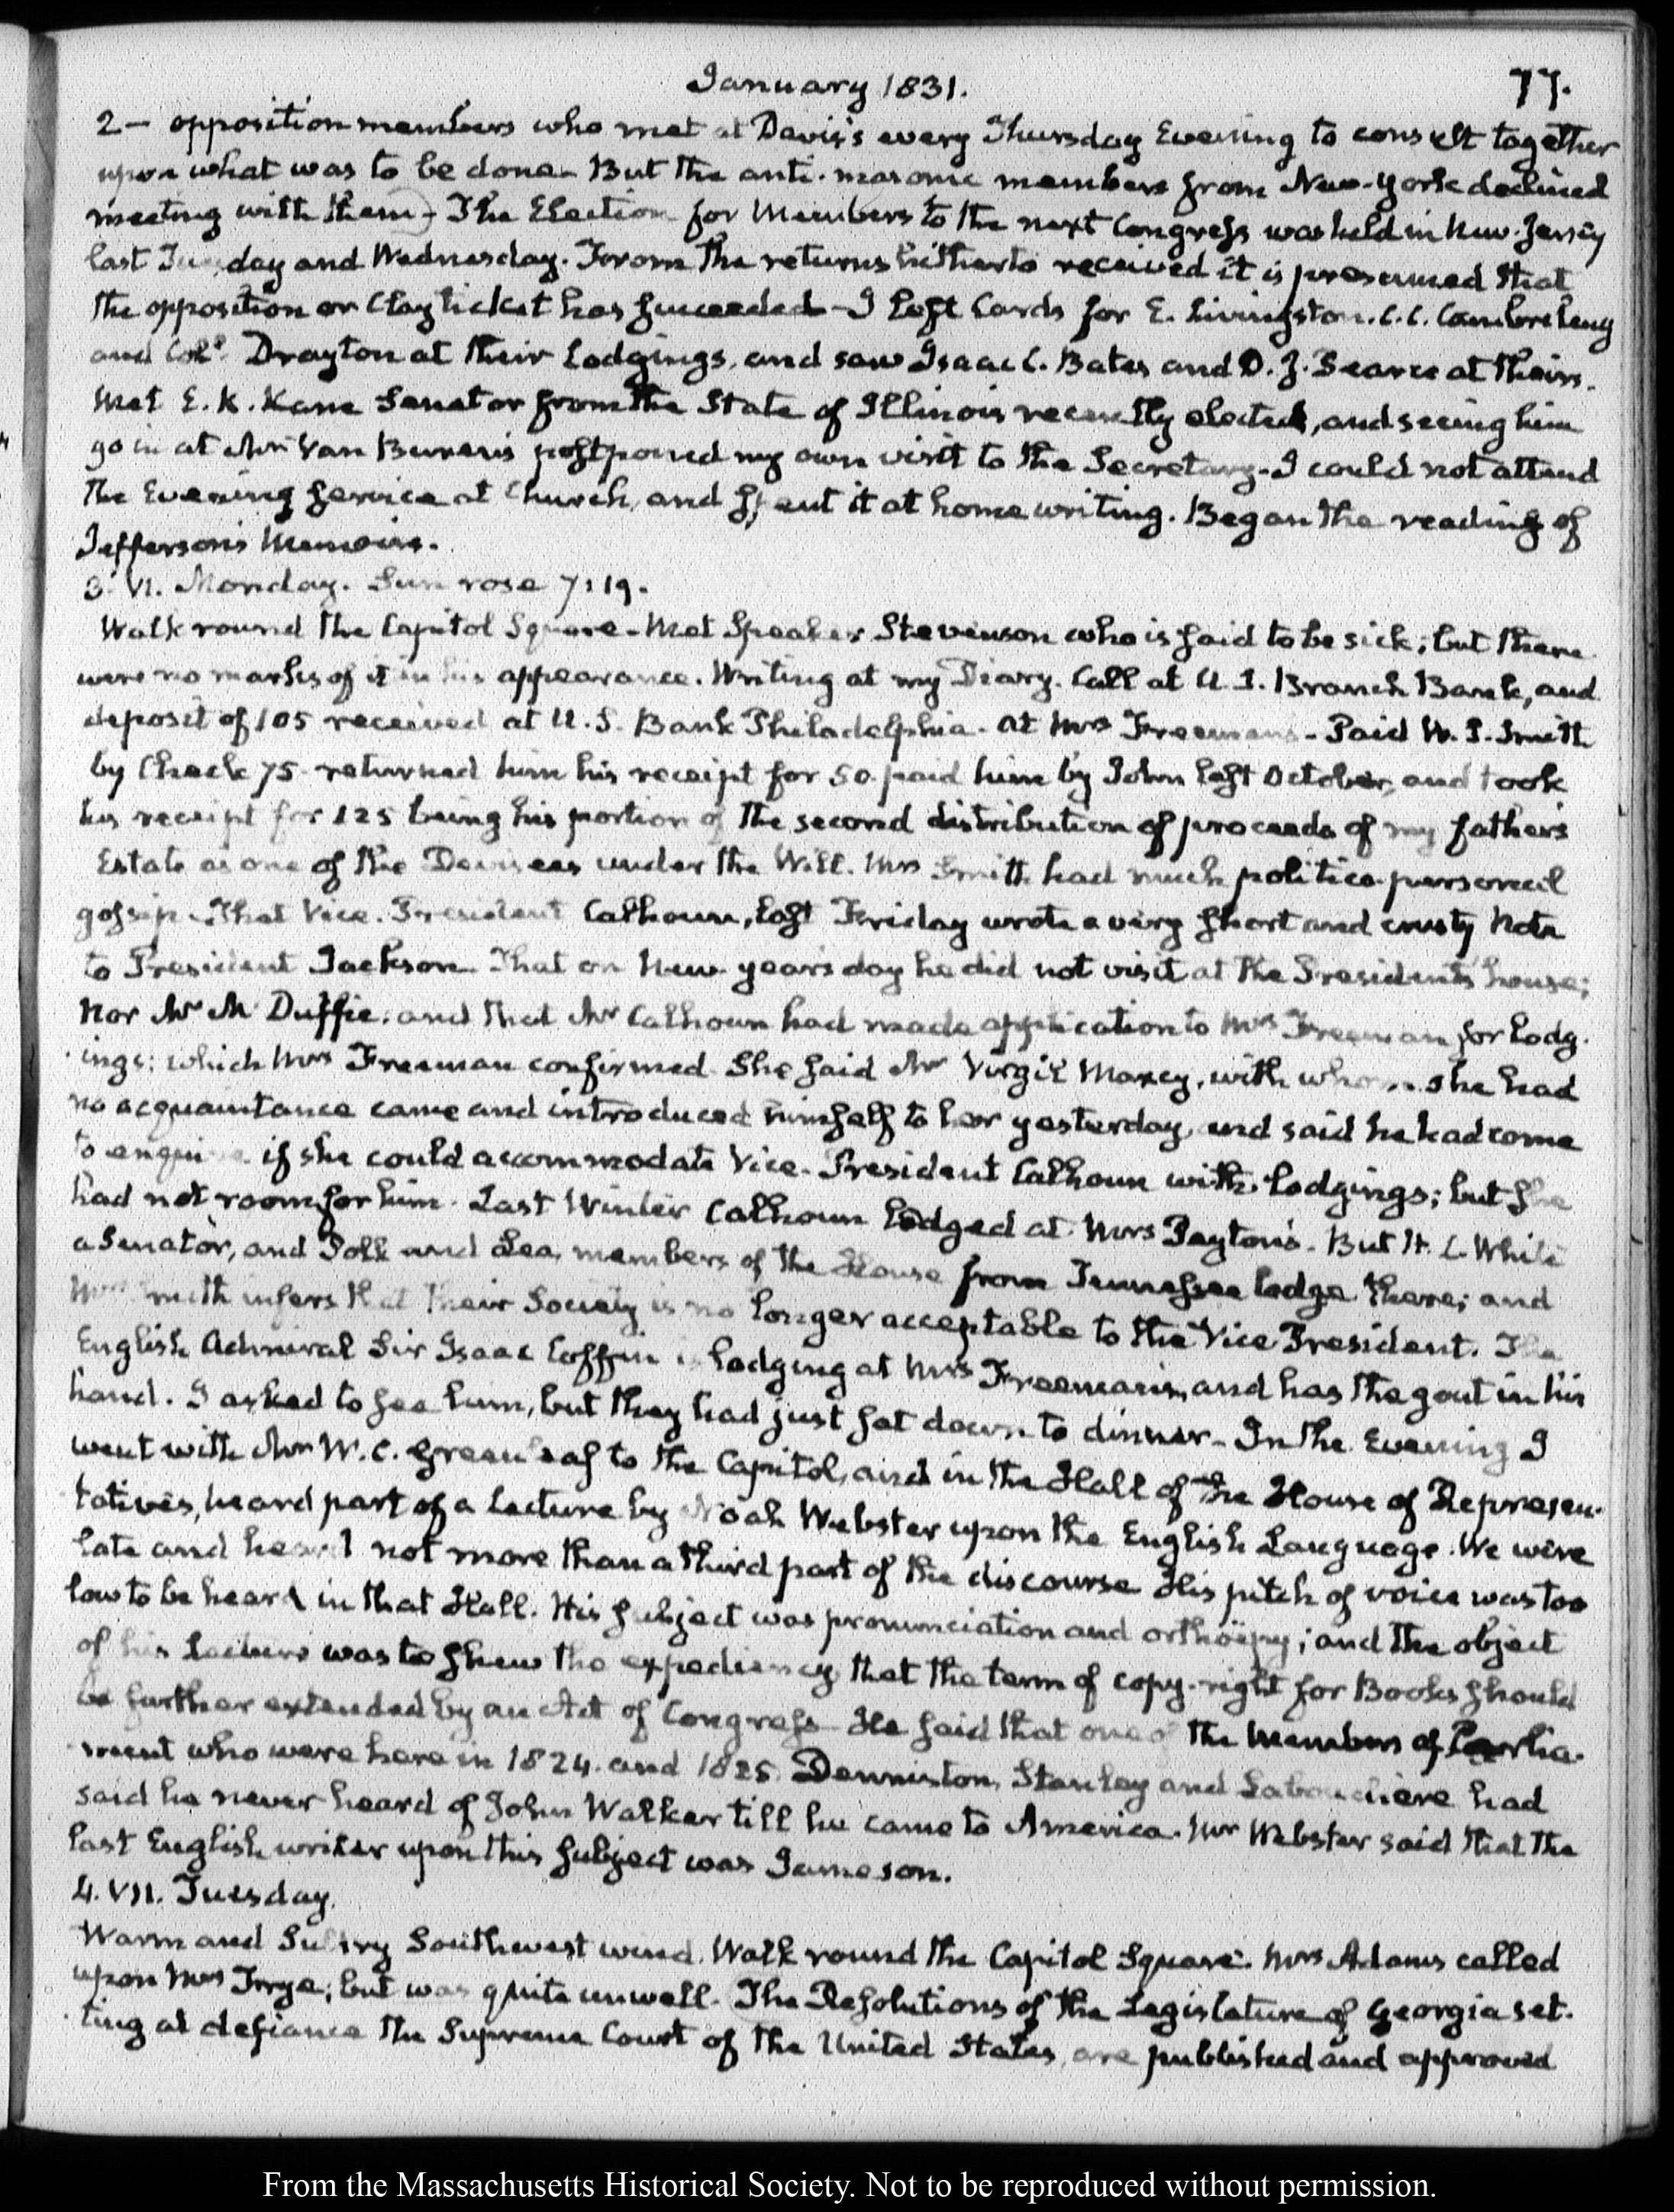 January 1831.
77.
2— opposition members who met at Davis's every Thursday Evening to consult together
upon what was to be done— But the anti-masonic members from New-York declined
meeting with them— The Election for Members to the next Congress was held in New-Jersey
last Tuesday and Wednesday. From the returns hitherto received it is presumed that
the opposition or Clay ticket has succeeded— I left Cards for E. Livingston, C. C. Cambreleng
and Coll. Drayton at their Lodgings, and saw Isaac C. Bates and D. J. Pearce at theirs.
Met E. K. Kane Senator from the State of Illinois recently elected, and seeing him
go in at Mr Van Buren's postponed my own visit to the Secretary— I could not attend
the Evening service at Church, and spent it at home writing. Began the reading of
Jefferson's Memoirs.
3. VI. Monday. Sun rose 7:19.
Walk round the Capitol Square— Met Speaker Stevenson who is said to be sick; but there
were no marks of it in his appearance. Writing at my Diary. Call at U.S. Branch Bank, and
deposit of 105 received at U.S. Bank Philadelphia. at Mrs Freeman's— Paid W. S. Smith
by Check 75. returned him his receipt for 50 paid him by John last October, and took
his receipt for 125 being his portion of the second distribution of proceeds of my father's
Estate as one of the Devisees under the Will. Mrs Smith had much politico-personal
gossip. That Vice-President Calhoun, last Friday wrote a very short and crusty Note
to President Jackson. That on New-years day he did not visit at the President's house;
nor Mr McDuffie; and that Mr Calhoun had made application to Mrs Freeman for Lodg-
ings; which Mrs Freeman confirmed. She said Mr Virgil Maxcy, with whom she had
no acquaintance came and introduced himself to her yesterday, and said he had come
to enquire if she could accommodate Vice-President Calhoun with lodgings; but she
had not room for him. Last Winter Calhoun lodged at Mrs Peyton's. But H. L. White
a Senator, and Polk and Lea, members of the House from Tennessee lodge there; and
Mrs Smith infers that their Society is no longer acceptable to the Vice President. The
English Admiral Sir Isaac Coffin is lodging at Mrs Freeman's, and has the gout in his
hand. I asked to see him, but they had just sat down to dinner— In the Evening I
went with Mr W. C. Greenleaf to the Capitol, and in the Hall of the House of Represen-
tatives, heard part of a lecture by Noah Webster upon the English Language. We were
late and heard not more than a third part of the discourse His pitch of voice was too
low to be heard in that Hall. His subject was pronunciation and orthöepy; and the object
of his Lecture was to shew the expediency that the term of copy-right for Books should
be further extended by an Act of Congress— He said that one of the Members of Parlia-
ment who were here in 1824. and 1825 Denniston, Stanley and Labouchere had
said he never heard of John Walker till he came to America. Mr Webster said that the
last English writer upon this subject was Jameson.
4. VII. Tuesday.
Warm and Sultry Southwest wind. Walk round the Capitol Square. Mrs Adams called
upon Mrs Frye; but was quite unwell. The Resolutions of the Legislature of Georgia set-
ting at defiance the Supreme Court of the United States, are published and approved
From the Massachusetts Historical Society. Not to be reproduced without permission.